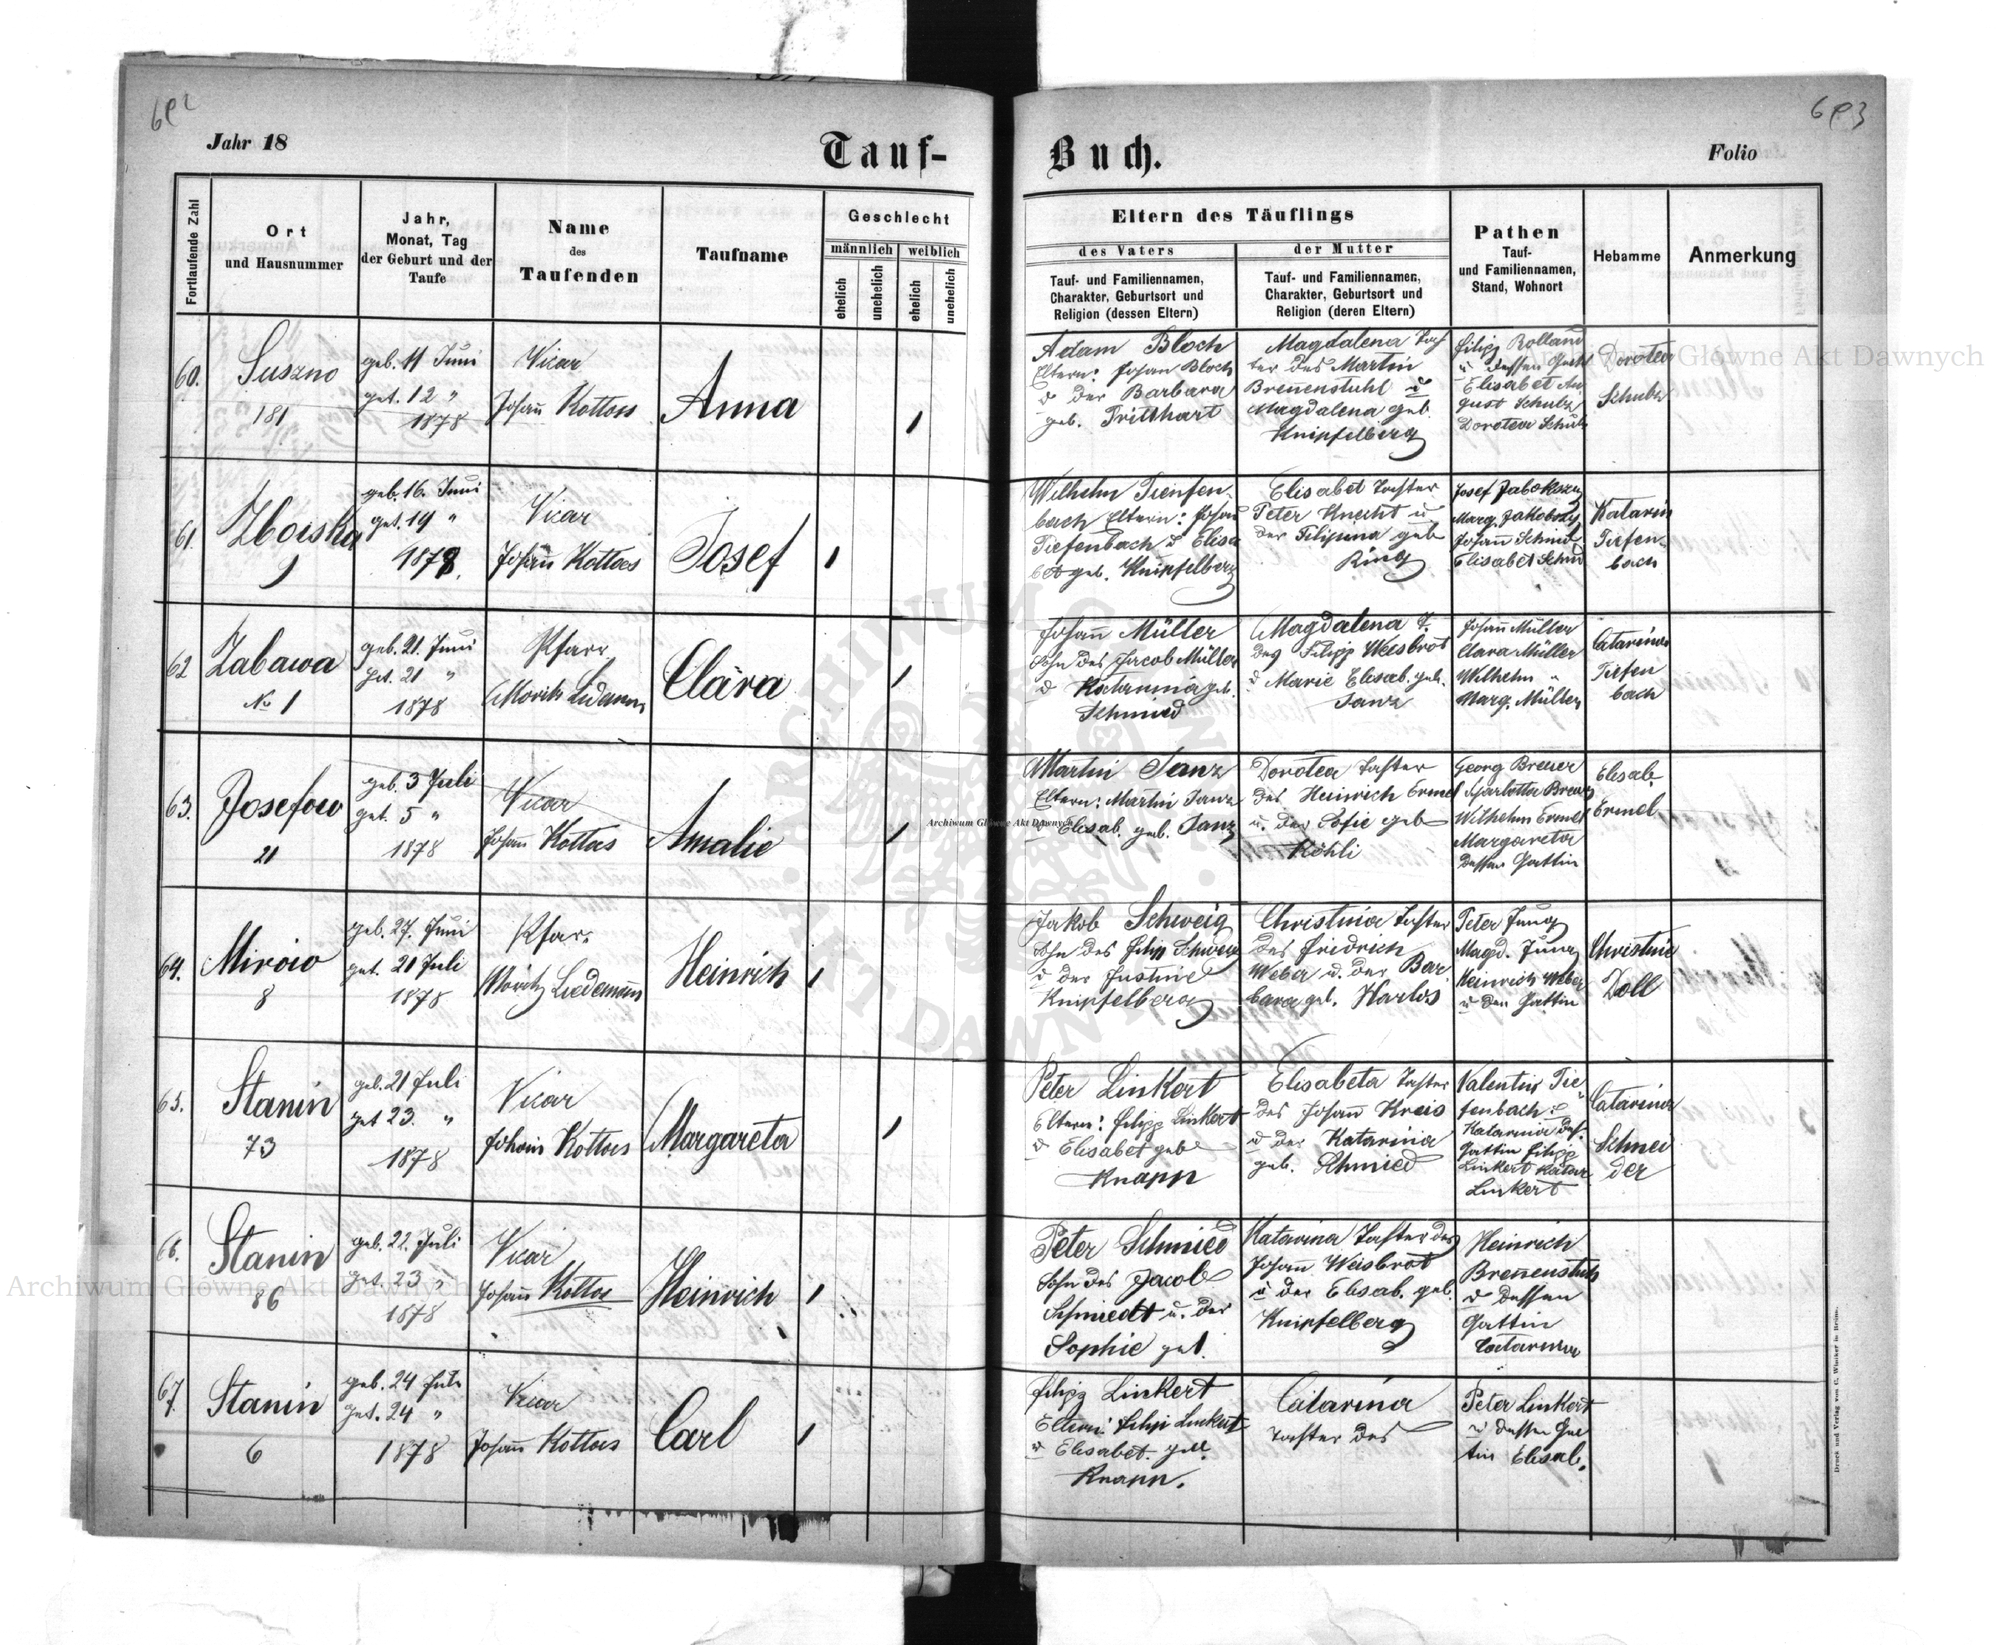 692
693
Jahr 18
Tauf-
Buch.
Folio
Fortlaufende Zahl
Ort
und Hausnummer
Jahr,
Monat, Tag
der Geburt und der
Taufe
Name
des
Taufenden
Taufname
Geschlecht
männlich
weiblich
ehelich
unehelich
ehelich
unehelich
Eltern des Täuflings
des Vaters
Tauf- und Familiennamen,
Charakter, Geburtsort und
Religion (dessen Eltern)
der Mutter
Tauf- und Familiennamen,
Charakter, Geburtsort und
Religion (deren Eltern)
Pathen
Tauf-
und Familiennamen,
Stand, Wohnort
Hebamme
Anmerkung
60.
Suszno
181
geb. 11 Juni
get. 12 "
1878
Vicar
Johann Kottoes
Anna
Adam Bloch
Eltern: Johan Bloch
u der Barbara
geb. Tritthart
Magdalena Toch
ter des Martin
Brennenstuhl u
Magdalena geb.
Knipfelberg
Filipp Rolland
u dessen
Elisabet Au
gust Schulz
Dorotea Schulz
Dorotea
Schulz
61.
Zboiska
9
geb. 16. Juni
get. 19 "
1878.
Vicar
Johann Kottoes
Josef
Wilhelm Tienfen-
bach Eltern: Johan
Tiefenbach u Elisa
bet geb. Knipfelberg
Elisabet Tochter
Peter Knecht u
der Filipina geb
Ring
Josef
Marg. Jakobszy
Johann Schmid
Elisabet Schmid
Katarin
Tiefen-
bach
62
Zabawa
No 1
geb. 21. Juni
get. 21 "
1878
Pfarr
Moritz Ledemann
Clara
Johann Müller
Sohn des Jacob Müller
u Katarina geb.
Schmied
Magdalena T.
des Filipp Weisbrot
u Marie Elisab. geb.
Janz
Johann Müller
Clara Müller
Wilhelm "
Marg. Müller
Catarina
Tiefen
bach
63.
Josefow
21
geb. 3 Juli
get. 5 "
1878
Vicar
Johann Kottoes
Amalie
Martin Janz
Eltern: Martin Janz
u Elisab. geb. Janz
Dorotea Tochter
des Heinrich Ermel
u. der Sofie geb
Köhli
Georg Breuer
Scharlotta Breuer
Wilhelm Ermel
Margareta
dessen Gattin
Elisab
Ermel
64.
Mirów
8
geb. 27. Juni
get. 21 Juli
1878
Pfar.
Moritz Ledemann
Heinrich
Jakob Schweig
Sohn des Filip Schweig
u der Justine
Knipfelberg
Christina Tochter
des Fridrich
Weber u. der Bar
bara geb. Karlos
Peter Jung
Magd. Jung
Heinrich Weber
u der Gattin
Christine
Doll
65.
Stanin
73
geb. 21 Juli
get 23. "
1878
Vicar
Johann Kottoes
Margareta
Peter Linkert
Eltern: Filipp Linkert
u Elisabet geb
Knapp
Elisabeta Tochter
des Johann Kreis
u der Katarina
geb. Schmied
Valentin Tie
fenbach u
Katarina des.
Gattin Filipp
Linkert Katar
Linkert
Catarina
Schnei
der
66.
Stanin
86
geb. 22. Juli
get. 23 "
1878
Vicar
Johann Kottoes
Heinrich
Peter Schmied
Sohn des Jacob
Schmiedt u. der
Sophie geb.
Katarina Tochter des
Johan Weisbrot
u der Elisab. geb.
Knipfelberg
Heinrich
Brennenstuhl
u dessen
Gattin
Catarina
67.
Stanin
6
geb. 24 Juli
get. 24 "
1878
Vicar
Johann Kottoes
Carl
Filipp Linkert
Eltern: Filip Linkert
u Elisabet. geb.
Knapp.
Catarina
Tochter des
Peter Linkert
u dessen Gat
tin Elisab.
Druck und Verlag von C. Winiker in Brünn.
Archiwum Główne Akt Dawnych
Archiwum Główne Akt Dawnych
Archiwum Główne Akt Dawnych